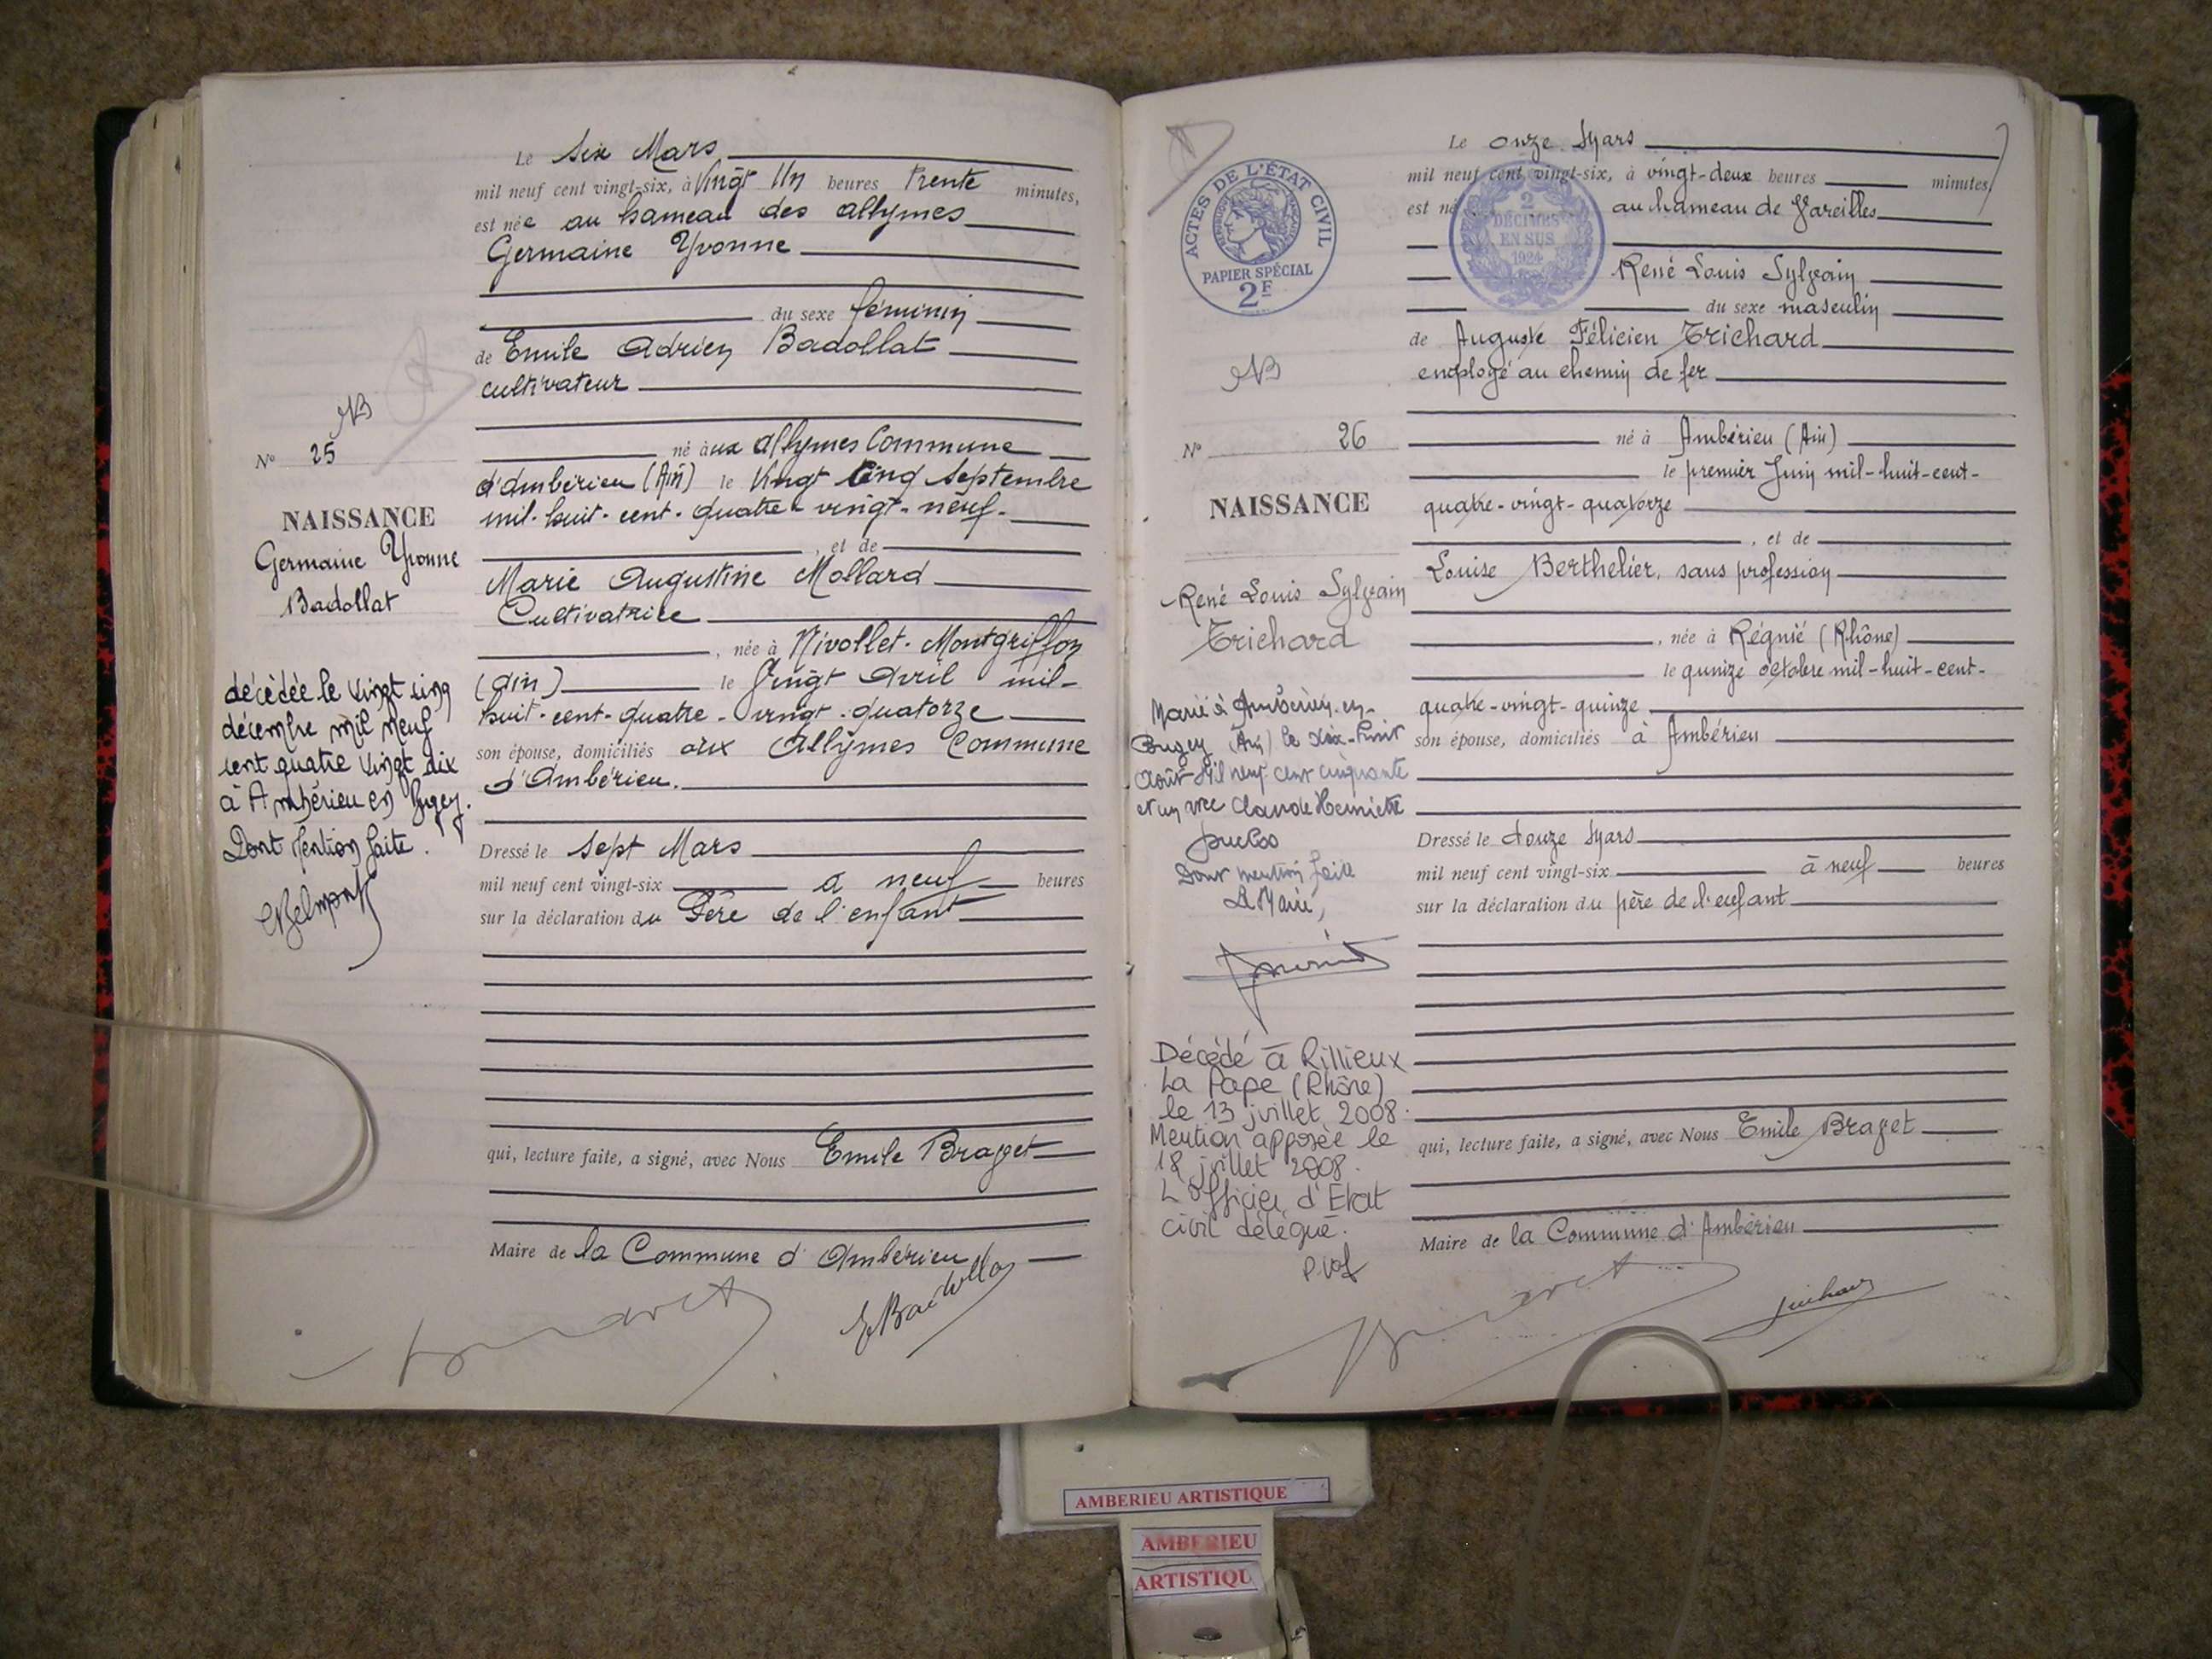 Le six Mars
mil neuf cent vingt-six, à Vingt Un heures Trente minutes,
est née au hameau des allymes
Germaine Yvonne
du sexe féminin
de Emile Adrien Badollat
cultivateur
né aux allymes Commune
d'ambérieu (Ain) le Vingt Cinq Septembre
mil-huit-cent-quatre-vingt-neuf-
, et de
Marie Augustine Mollard
Cultivatrice
, née à Nivollet-Montgriffon
(Ain) le Vingt Avril mil-
huit-cent-quatre-vingt-quatorze
son épouse, domiciliés aux Allymes Commune
d'Ambérieu.
Dressé le Sept Mars
mil neuf cent vingt-six à neuf heures
sur la déclaration du Père de l'enfant
qui, lecture faite, a signé, avec Nous Emile Bravet
Maire de la Commune d'Ambérieu
NB
N° 25
NAISSANCE
Germaine Yvonne
Badollat
décédée le vingt cinq
décembre mil neuf
cent quatre vingt dix
à Ambérieu en Bugey.
Dont Mention faite.
ACTES DE L'ÉTAT CIVIL
PAPIER SPÉCIAL
2F
2
DÉCIMES
EN SUS
1924
Le onze Mars
mil neuf cent vingt-six, à vingt-deux heures minutes,
est né au hameau de Vareilles
René Louis Sylvain
du sexe masculin
de Auguste Félicien Trichard
employé au chemin de fer
né à Ambérieu (Ain)
le premier Juin mil-huit-cent-
quatre-vingt-quatorze
, et de
Louise Berthelier, sans profession
, née à Régnié (Rhône)
le quinze octobre mil-huit-cent-
quatre-vingt-quinze
son épouse, domiciliés à Ambérieu
Dressé le douze Mars
mil neuf cent vingt-six à neuf heures
sur la déclaration du père de l'enfant
qui, lecture faite, a signé, avec Nous Emile Bravet
Maire de la Commune d'Ambérieu
NB
N° 26
NAISSANCE
René Louis Sylvain
Trichard
Marié à Ambérieu-en-
Bugey (Ain) le dix-huit
Août mil neuf cent cinquante
et un avec Claude Henriette
Dont mention faite
Le Maire,
Décédé à Rillieux
La Pape (Rhône)
le 13 juillet 2008.
Mention apposée le
18 juillet 2008.
L'officier d'Etat
civil délégué.
AMBERIEU ARTISTIQUE
AMBERIEU
ARTISTIQU